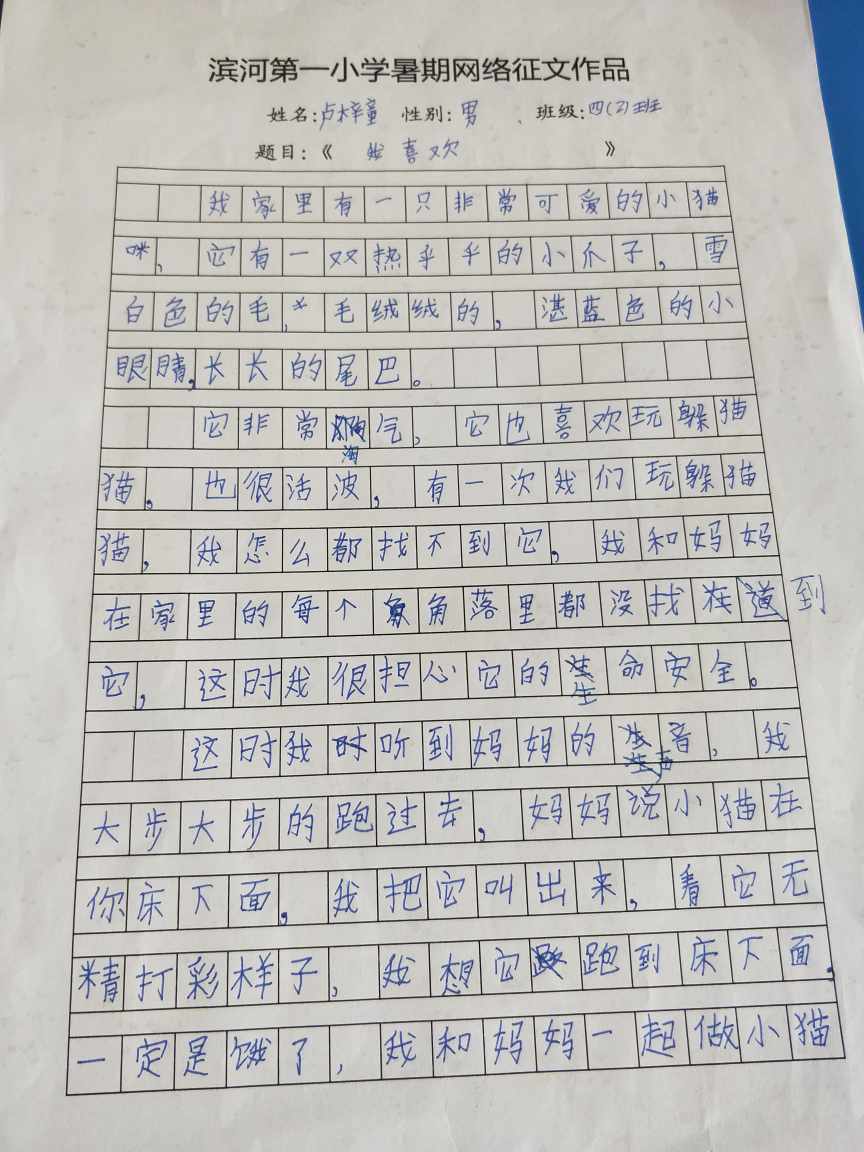 滨河第一小学暑期网络征文作品
姓名:卢梓童 性别:男 、班级:四(2)班
题目:《 我喜欢 》
我家里有一只非常可爱的小猫
咪,它有一双热乎乎的小爪子,雪
白色的毛,毛绒绒的,湛蓝色的小
眼睛,长长的尾巴。
它非常淘气,它也喜欢玩躲猫
猫,也很活波,有一次我们玩躲猫
猫,我怎么都找不到它,我和妈妈
在家里的每个角落里都没找在到
它,这时我很担心它的生命安全。
这时我听到妈妈的声音,我
大步大步的跑过去,妈妈说小猫在
你床下面,我把它叫出来,看它无
精打彩样子,我想它跑到床下面,
一定是饿了,我和妈妈一起做小猫